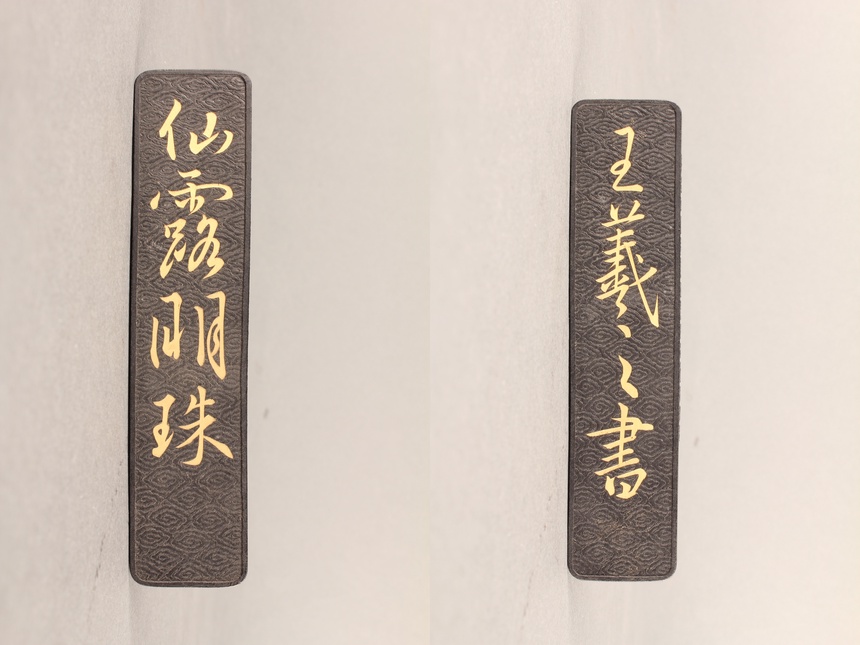 仙露明珠
王羲之書